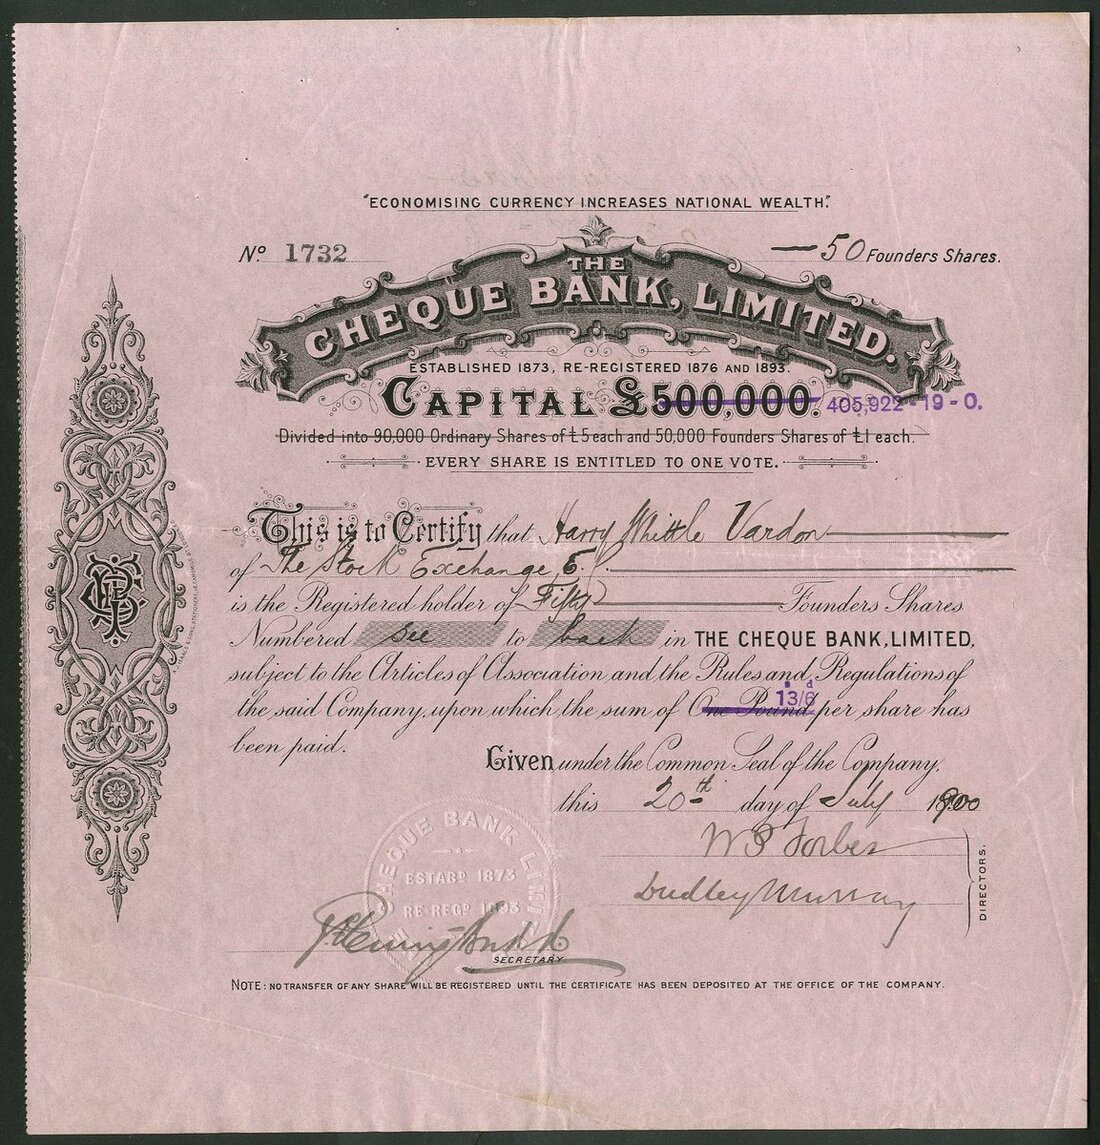 "ECONOMISING CURRENCY INCREASES NATIONAL WEALTH."
No. 1732
— 50 Founders Shares.
THE
CHEQUE BANK, LIMITED.
ESTABLISHED 1873, RE-REGISTERED 1876 AND 1893.
CAPITAL £500,000. 405,922-19-0.
Divided into 90,000 Ordinary Shares of £5 each and 50,000 Founders Shares of £1 each.
EVERY SHARE IS ENTITLED TO ONE VOTE.
This is to Certify that Harry Whittle Vardon
of The Stock Exchange, E.C.
is the Registered holder of Fifty Founders Shares
Numbered see to back in THE CHEQUE BANK, LIMITED,
subject to the Articles of Association and the Rules and Regulations of
s d
13/6
the said Company, upon which the sum of One Pound per share has
been paid.
Given under the Common Seal of the Company,
this 20th day of July 1900
W S Forbes
Dudley Murray
DIRECTORS.
CHEQUE BANK LIMITED
ESTABD 1873
RE-REGD 1893
SECRETARY.
NOTE: NO TRANSFER OF ANY SHARE WILL BE REGISTERED UNTIL THE CERTIFICATE HAS BEEN DEPOSITED AT THE OFFICE OF THE COMPANY.